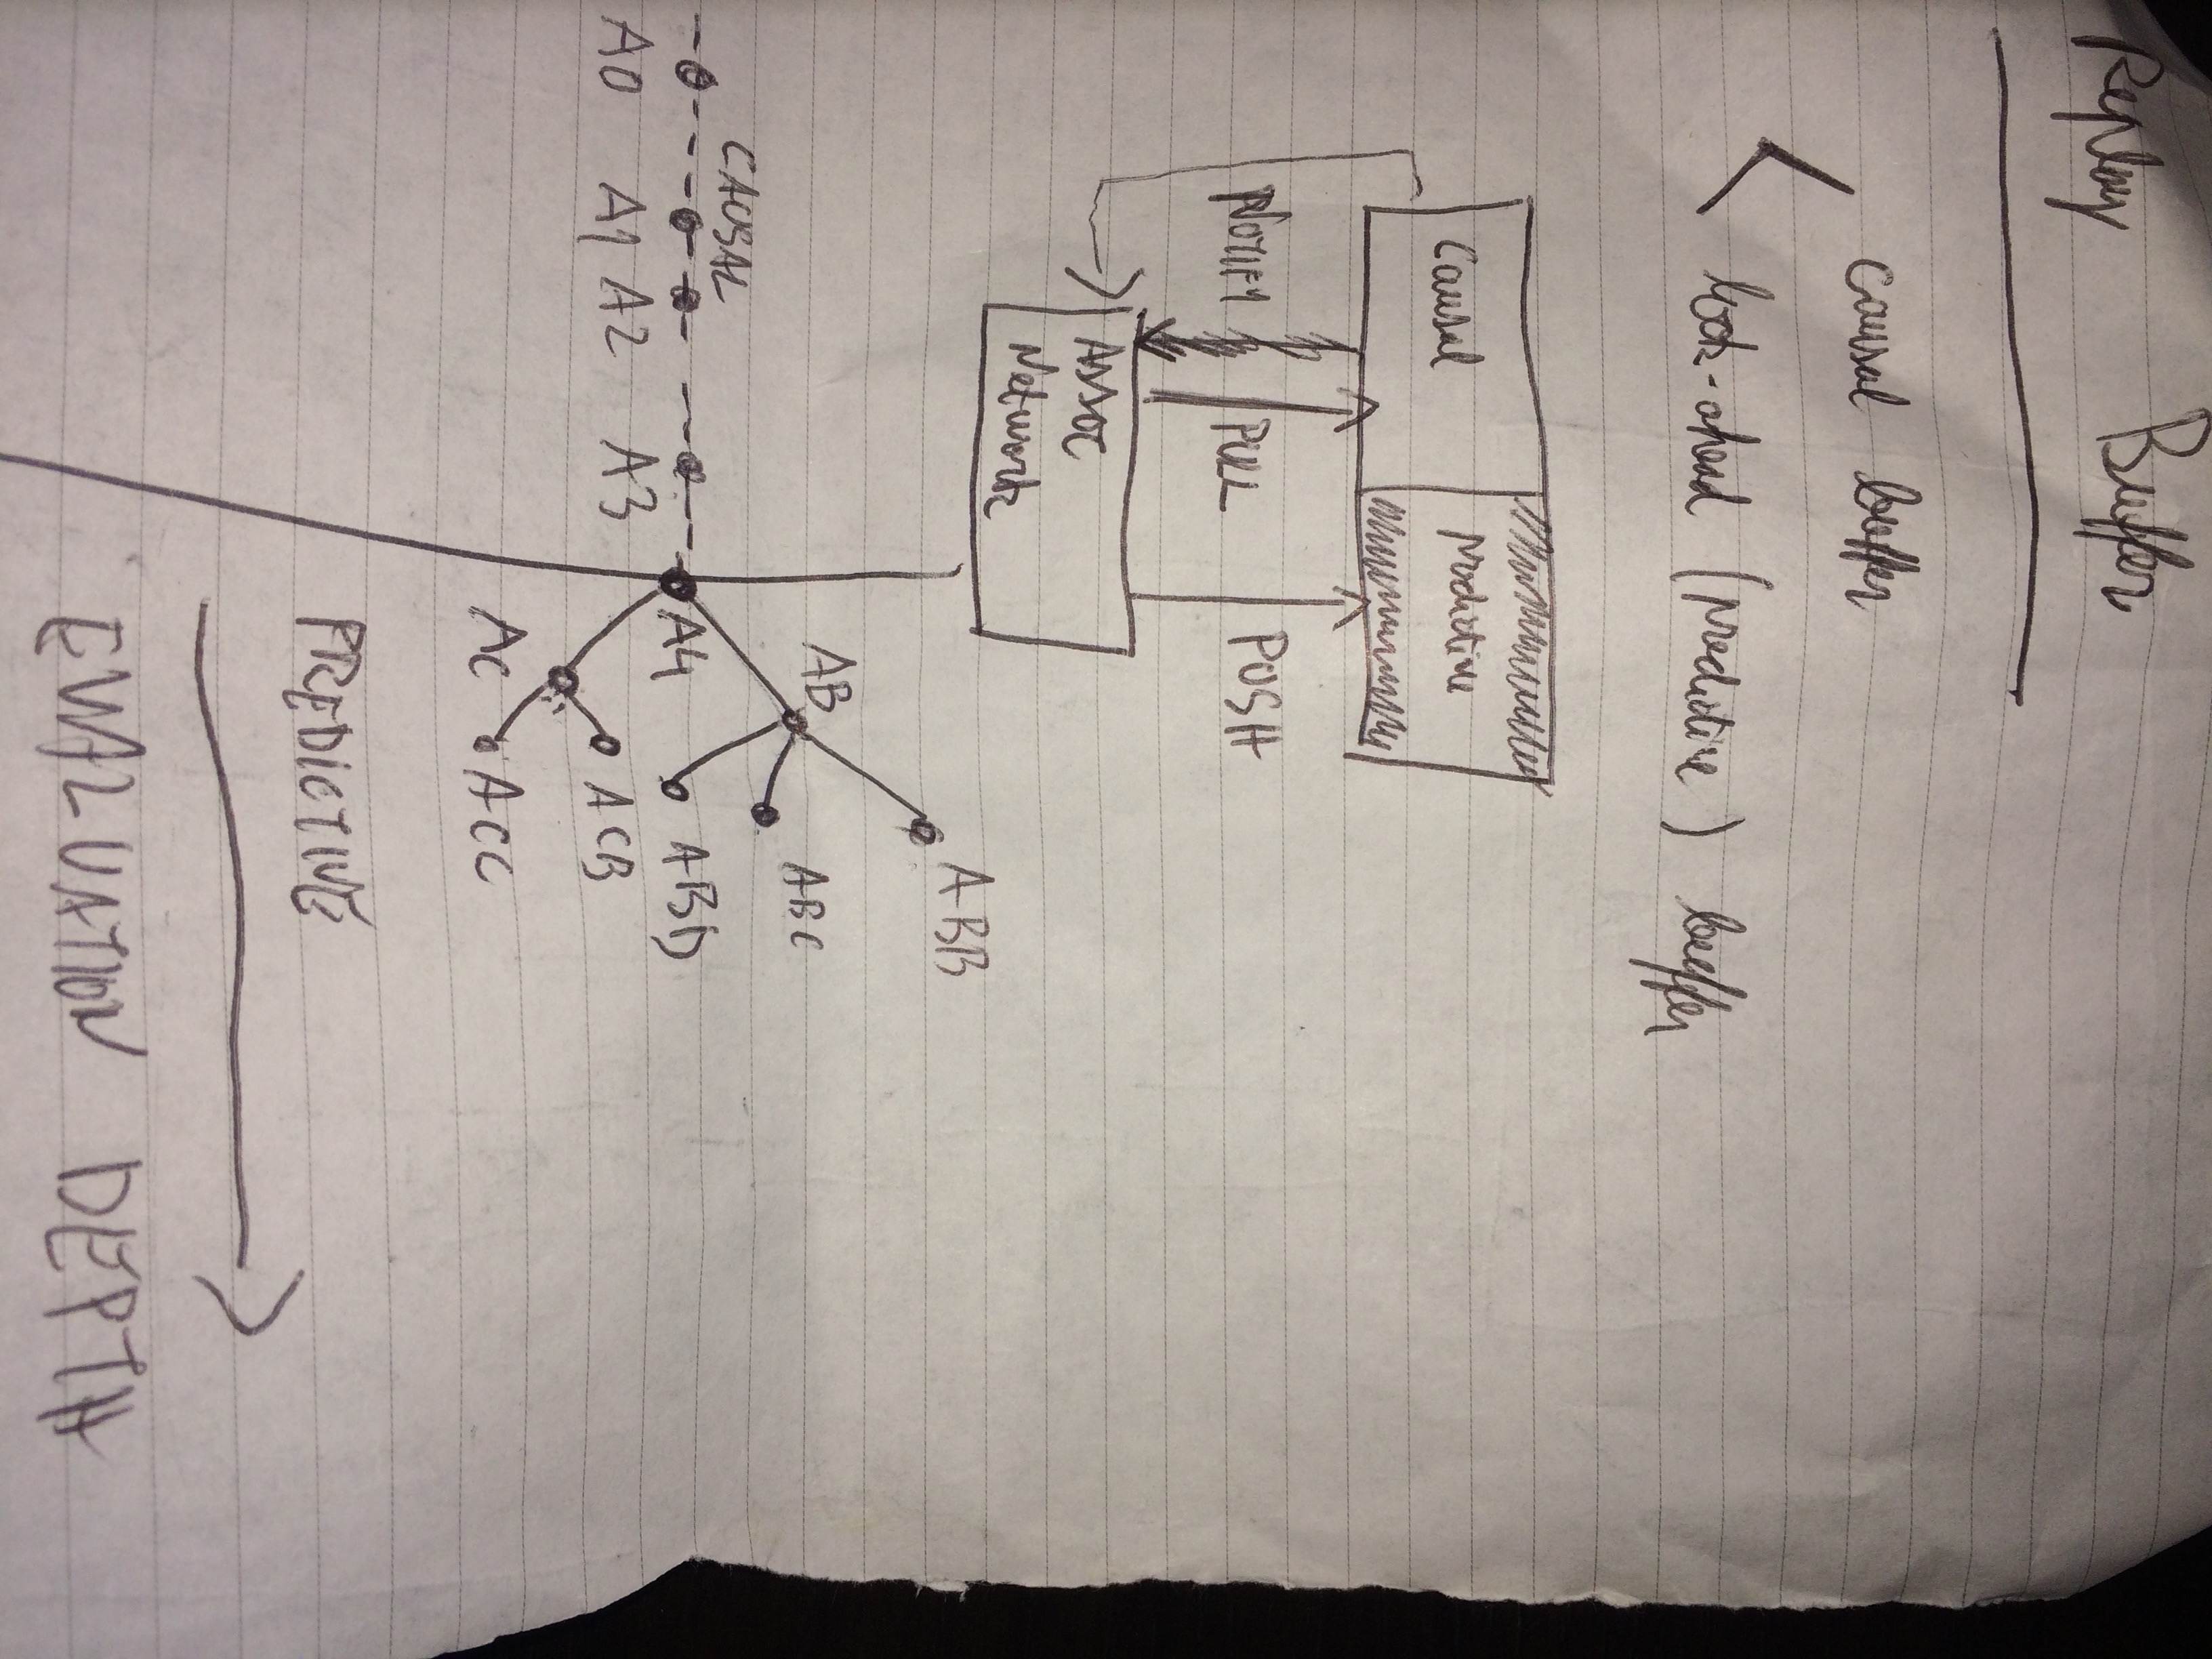 Replay Buffer
causal buffer
look-ahead (predictive) buffer
Causal
Predictive
NOTIFY
PULL
PUSH
ASSOC
Network
CAUSAL
A0 A1 A2 A3 A4
AB
ABB
ABC
ABD
ACB
AC
ACC
PREDICTIVE
EVALUATION DEPTH